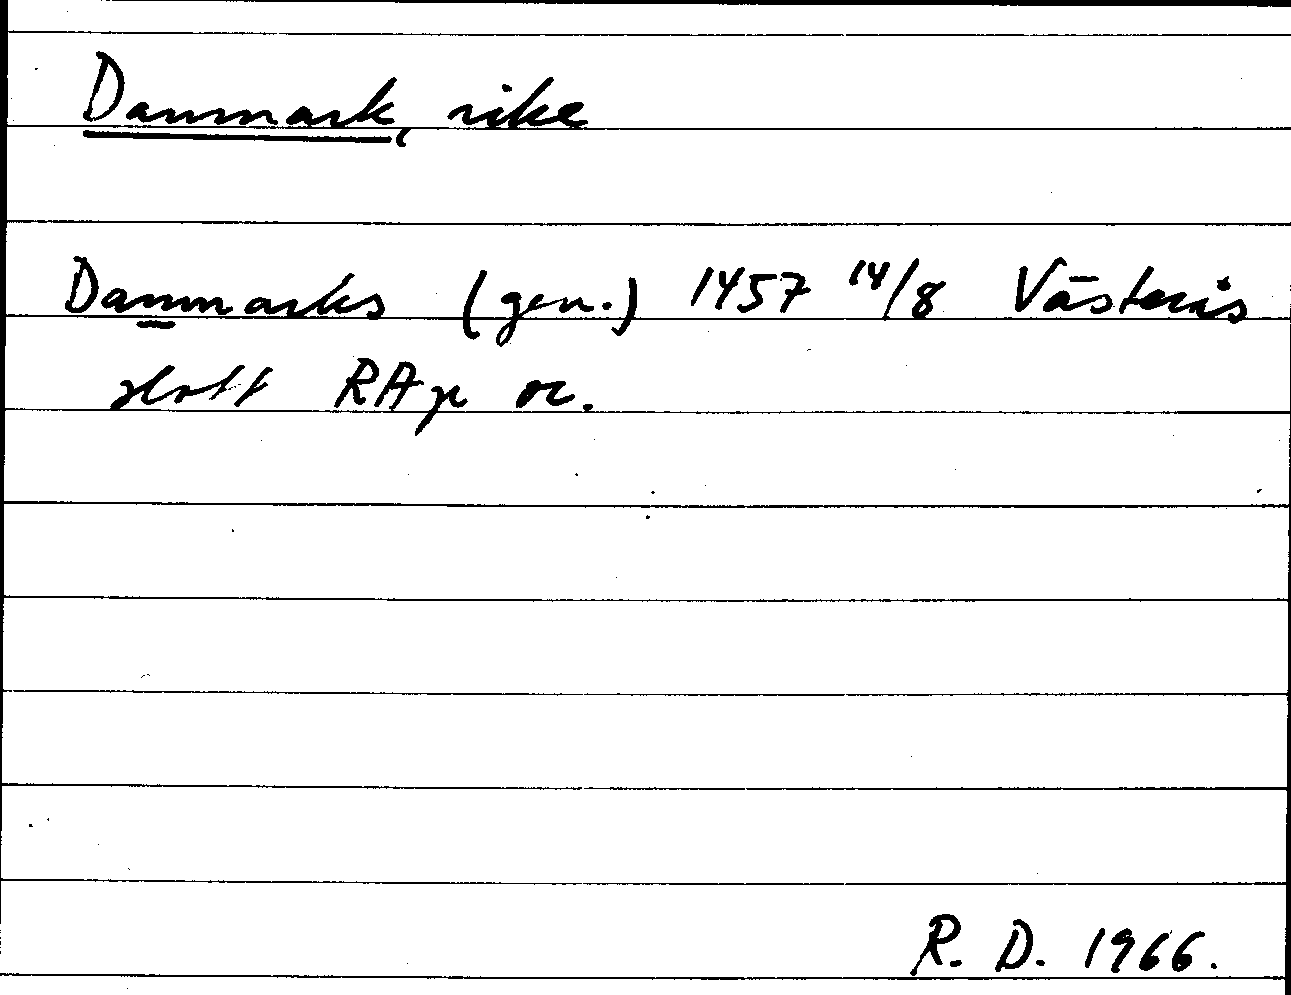 Danmark, rike
Danmarks (gen.) 1457 14/8 Västerås
slott RAp or.
R. D. 1966.